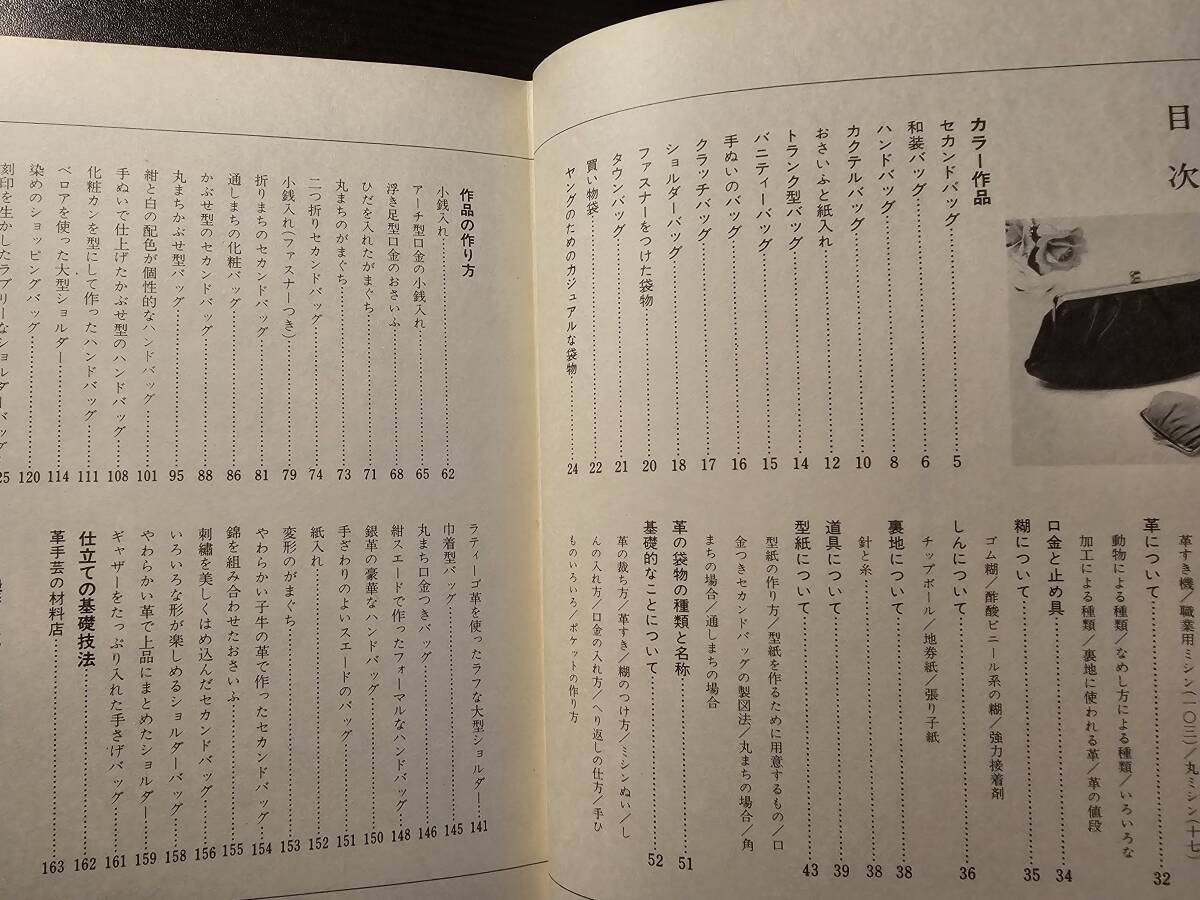 目次
カラー作品
セカンドバッグ……5
和装バッグ……6
ハンドバッグ……8
カクテルバッグ……10
おさいふと紙入れ……12
トランク型バッグ……14
バニティーバッグ……15
手ぬいのバッグ……16
クラッチバッグ……17
ショルダーバッグ……18
ファスナーをつけた袋物……20
タウンバッグ……21
買い物袋……22
ヤングのためのカジュアルな袋物……24
革すき機/職業用ミシン(一〇三)/丸ミシン(十七)
革について……32
動物による種類/なめし方による種類/いろいろな
加工による種類/裏地に使われる革/革の値段
口金と止め具……34
糊について……35
ゴム糊/酢酸ビニール系の糊/強力接着剤
しんについて……36
チップボール/地券紙/張り子紙
裏地について……38
針と糸……38
道具について……39
型紙について……43
型紙の作り方/型紙を作るために用意するもの/口
金つきセカンドバッグの製図法/丸まちの場合/角
まちの場合/通しまちの場合
革の袋物の種類と名称……51
基礎的なことについて……52
革の裁ち方/革すき/糊のつけ方/ミシンぬい/し
んの入れ方/口金の入れ方/へり返しの仕方/手ひ
ものいろいろ/ポケットの作り方
作品の作り方
小銭入れ……62
アーチ型口金の小銭入れ……65
浮き足型口金のおさいふ……68
ひだを入れたがまぐち……71
丸まちのがまぐち……73
二つ折りセカンドバッグ……74
小銭入れ(ファスナーつき)……79
折りまちのセカンドバッグ……81
通しまちの化粧バッグ……86
かぶせ型のセカンドバッグ……88
丸まちかぶせ型バッグ……95
紺と白の配色が個性的なハンドバッグ……101
手ぬいで仕上げたかぶせ型のハンドバッグ……108
化粧カンを型にして作ったハンドバッグ……111
ベロアを使った大型ショルダー……114
染めのショッピングバッグ……120
刻印を生かしたラブリーなショルダーバッグ
25
ラティーゴ革を使ったラフな大型ショルダー……141
巾着型バッグ……145
丸まち口金つきバッグ……146
紺スエードで作ったフォーマルなハンドバッグ……148
銀革の豪華なハンドバッグ……150
手ざわりのよいスエードのバッグ……151
紙入れ……152
変形のがまぐち……153
やわらかい子牛の革で作ったセカンドバッグ……154
錦を組み合わせたおさいふ……155
刺繡を美しくはめ込んだセカンドバッグ……156
いろいろな形が楽しめるショルダーバッグ……158
やわらかい革で上品にまとめたショルダー……159
ギャザーをたっぷり入れた手さげバッグ……161
仕立ての基礎技法……162
革手芸の材料店……163